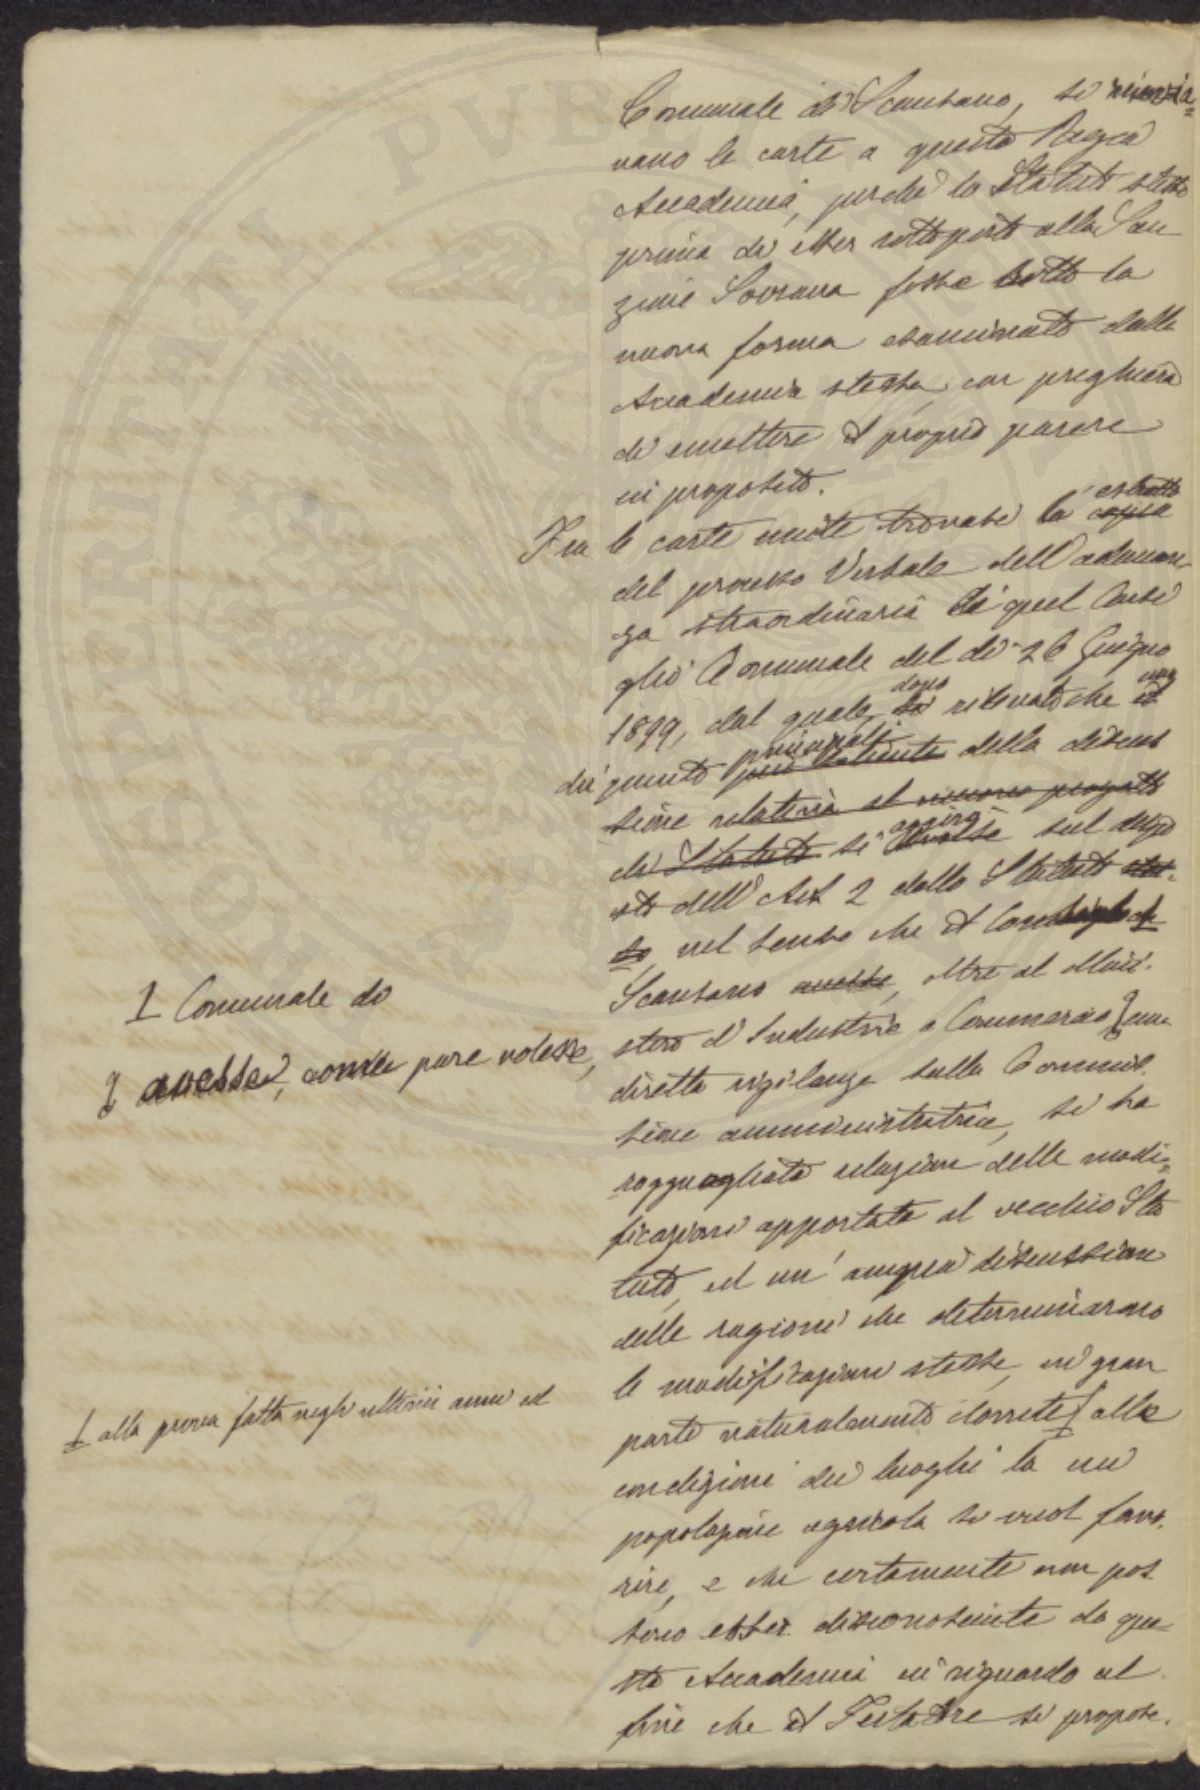 Comunale di Scansano, si rinvia
vano le carte a questa Regia
Accademia, perchè lo Statuto stesso
prima di esser sottoposto alla San
zione Sovrana fosse sotto la
nuova forma esaminato dalla
Accademia stessa, con preghiera
di emettere il proprio parere
in proposito.
Fra le carte unite trovasi la copia estratto
del processo Verbale dell'adunan
za straordinaria di quel Consi
glio Comunale del dì 26 Giugno
1899, dal quale, dopo rilevato che uno
dei punti principali più salienti della discus
sione relativa al nuovo progetto
di Statuto si aggirò sul dispo
sto dell'Art 2 dello Statuto stes
so, nel senso che il Consiglio di
Scansano avesse, oltre al Mini
stero d'Industria e Commercio una
diretta vigilanza sulla Commis
sione amministratrice, si ha
ragguagliata relazione delle modi
ficazioni apportate al vecchio Sta
tuto, ed un'ampia discussione
delle ragioni che determinarono
le modificazioni stesse, in gran
parte naturalmente dovute alle
condizioni dei luoghi la cui
popolazione agricola si vuol favo
rire, e che certamente non pos
sono esser disconosciute da que
sta Accademia in riguardo al
fine che il Testatore si propose.
I Comunale di
avesse, come pure volesse,
alla prova fatta negli ultimi anni ed